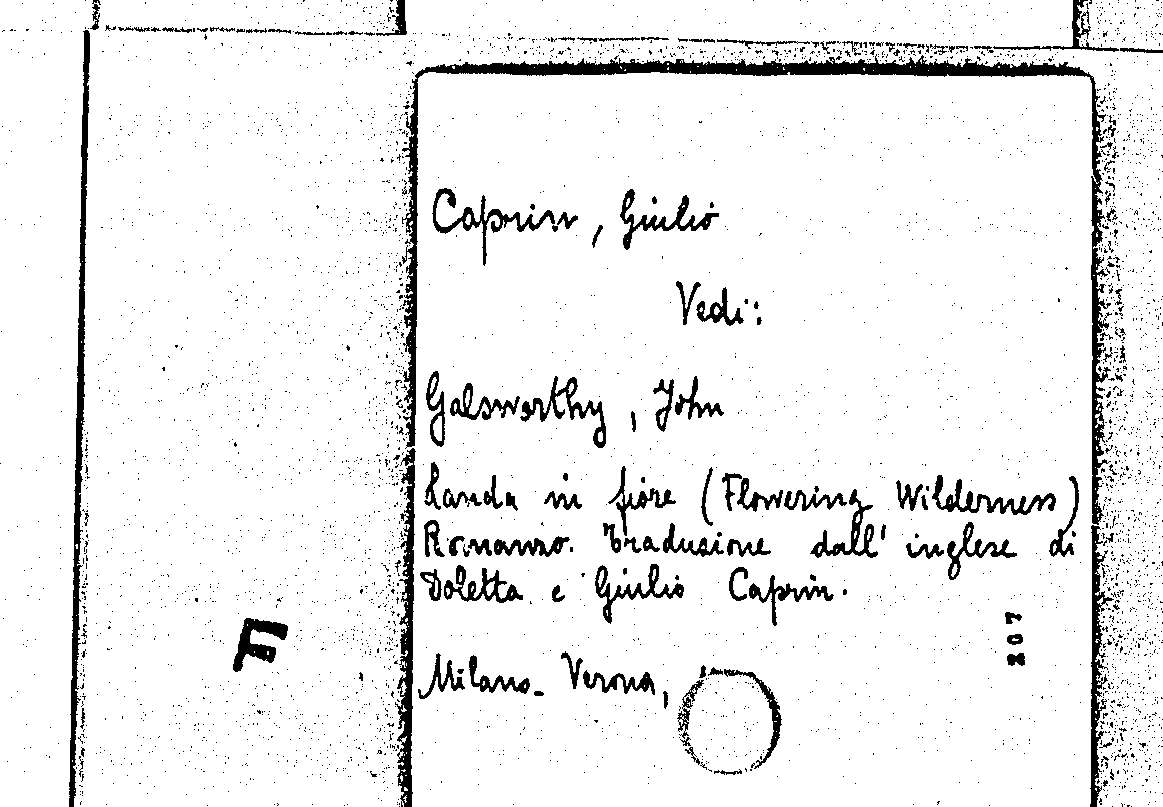 Caprin, Giulio
Vedi:
Galsworthy, John
Landa in fiore (Flowering Wilderness)
Romanzo. Traduzione dall' inglese di
Doletta e Giulio Caprin.
F
207
Milano-Verona,